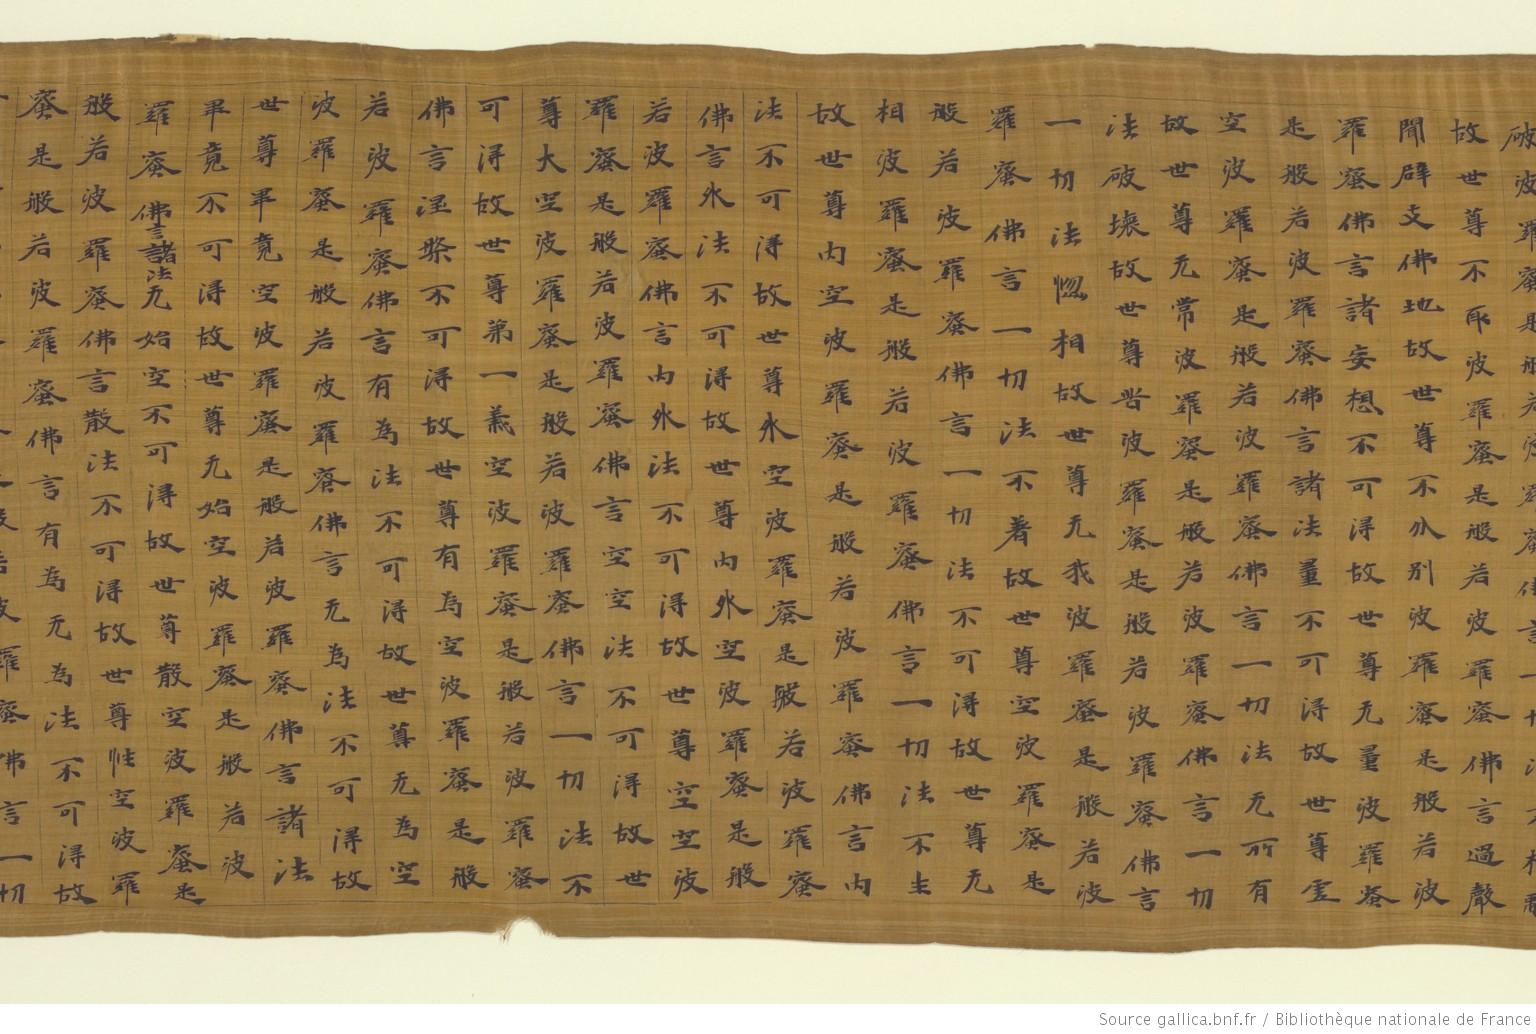 破波羅蜜是般若波羅蜜佛言一切法不相離
故世尊不取波羅蜜是般若波羅蜜佛言過聲
聞辟支佛地故世尊不分別波羅蜜是般若波
羅蜜佛言諸妄想不可得故世尊无量波羅蜜
是般若波羅蜜佛言諸法量不可得故世尊虛
空波羅蜜是般若波羅蜜佛言一切法无所有
故世尊无常波羅蜜是般若波羅蜜佛言一切
法破壞故世尊苦波羅蜜是般若波羅蜜佛言
一切法惱相故世尊无我波羅蜜是般若波
羅蜜佛言一切法不著故世尊空波羅蜜是
般若波羅蜜佛言一切法不可得故世尊无
相波羅蜜是般若波羅蜜佛言一切法不生
故世尊內空波羅蜜是般若波羅蜜佛言內
法不可得故世尊外空波羅蜜是般若波羅蜜
佛言外法不可得故世尊內外空波羅蜜是般
若波羅蜜佛言內外法不可得故世尊空空波
羅蜜是般若波羅蜜佛言空空法不可得故世
尊大空波羅蜜是般若波羅蜜佛言一切法不
可得故世尊第一義空波羅蜜是般若波羅蜜
佛言涅槃不可得故世尊有為空波羅蜜是般
若波羅蜜佛言有為法不可得故世尊无為空
波羅蜜是般若波羅蜜佛言无為法不可得故
世尊畢竟空波羅蜜是般若波羅蜜佛言諸法
畢竟不可得故世尊无始空波羅蜜是般若波
羅蜜佛言諸法无始空不可得故世尊散空波羅蜜是
般若波羅蜜佛言散法不可得故世尊性空波羅
蜜是般若波羅蜜佛言有為无為法不可得故
般若波羅蜜佛言一切
Source gallica.bnf.fr / Bibliothèque nationale de France